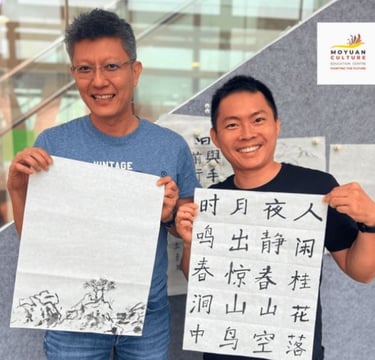 MOYUAN
CULTURE
EDUCATION CENTRE
THE FUTURE
VINTAGE
人闲桂花落
夜静春山空
月出惊山鸟
时鸣春涧中